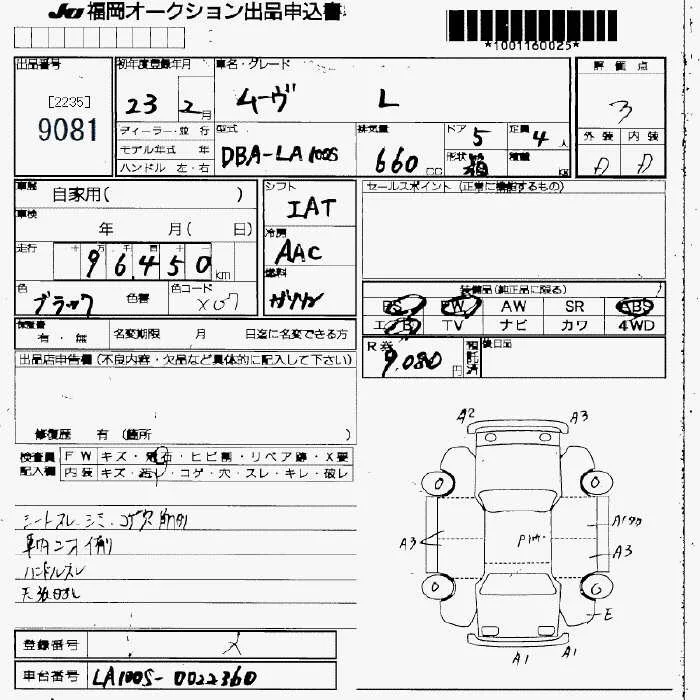 JU 福岡オークション出品申込書
*1001160025*
出品番号
[2235]
9081
初年度登録年月
23 2月
車名・グレード
ムーヴ L
評価点
3
外装 内装
D D
ディーラー・並行
モデル年式 年
ハンドル 左・右
型式
DBA-LA100S
排気量
660 cc
ドア
5
形状
定員
4人
積載
kg
車歴
自家用( )
車検
年 月( 日)
走行
96,450 km
色
ブラック
色替
色コード
X07
シフト
IAT
冷房
AAC
燃料
ガソリン
セールスポイント (正常に機能するもの)
装備品(純正品に限る)
PS PW AW SR ABS
エアB TV ナビ カワ 4WD
R券
9,080円
預託済
後日品
保証書
有・無
名変期限 月 日迄に名変できる方
出品店申告欄 (不良内容・欠品など具体的に記入して下さい)
修復歴 有 (箇所 )
検査員
記入欄
FW キズ・飛石・ヒビ割・リペア跡・X要
内装 キズ・汚レ・コゲ・穴・スレ・キレ・破レ
シートスレ、シミ、コゲ穴
ハンドルスレ
A2
A3
A3
A3
E
A1
A1
登録番号
メ
車台番号
LA100S-0022360